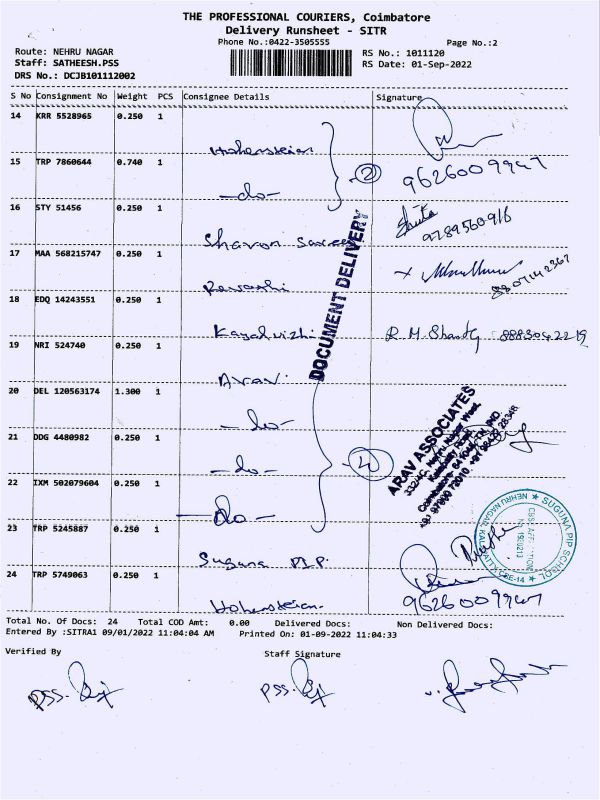 THE PROFESSIONAL COURIERS, Coimbatore
Delivery Runsheet - SITR
Phone No.:0422-3505555 Page No.:2
Route: NEHRU NAGAR RS No.: 1011120
Staff: SATHEESH.PSS RS Date: 01-Sep-2022
DRS No.: DCJB101112002
S No Consignment No Weight PCS Consignee Details Signature
14 KRR 5528965 0.250 1
Hohenstein
15 TRP 7860644 0.740 1
-do- 2 9626009947
16 STY 51456 0.250 1
Sharon 9789560916
17 MAA 568215747 0.250 1
Revathi 8807142367
18 EDQ 14243551 0.250 1
Kayalvizhi R. M. Shanthy 8883042219
19 NRI 524740 0.250 1
Arav
DOCUMENT DELIVERY
20 DEL 120563174 1.300 1
-do-
21 DDG 4480982 0.250 1
-do- 4
ARAV ASSOCIATES
22 IXM 502079604 0.250 1
-do-
23 TRP 5245887 0.250 1
Suguna P.I.P.
SUGUNA PIP SCHOOL
NEHRU NAGAR,
24 TRP 5749063 0.250 1
Hohenstein 9626009947
Total No. Of Docs: 24 Total COD Amt: 0.00 Delivered Docs: Non Delivered Docs:
Entered By :SITRA1 09/01/2022 11:04:04 AM Printed On: 01-09-2022 11:04:33
Verified By Staff Signature
PSS. PSS.